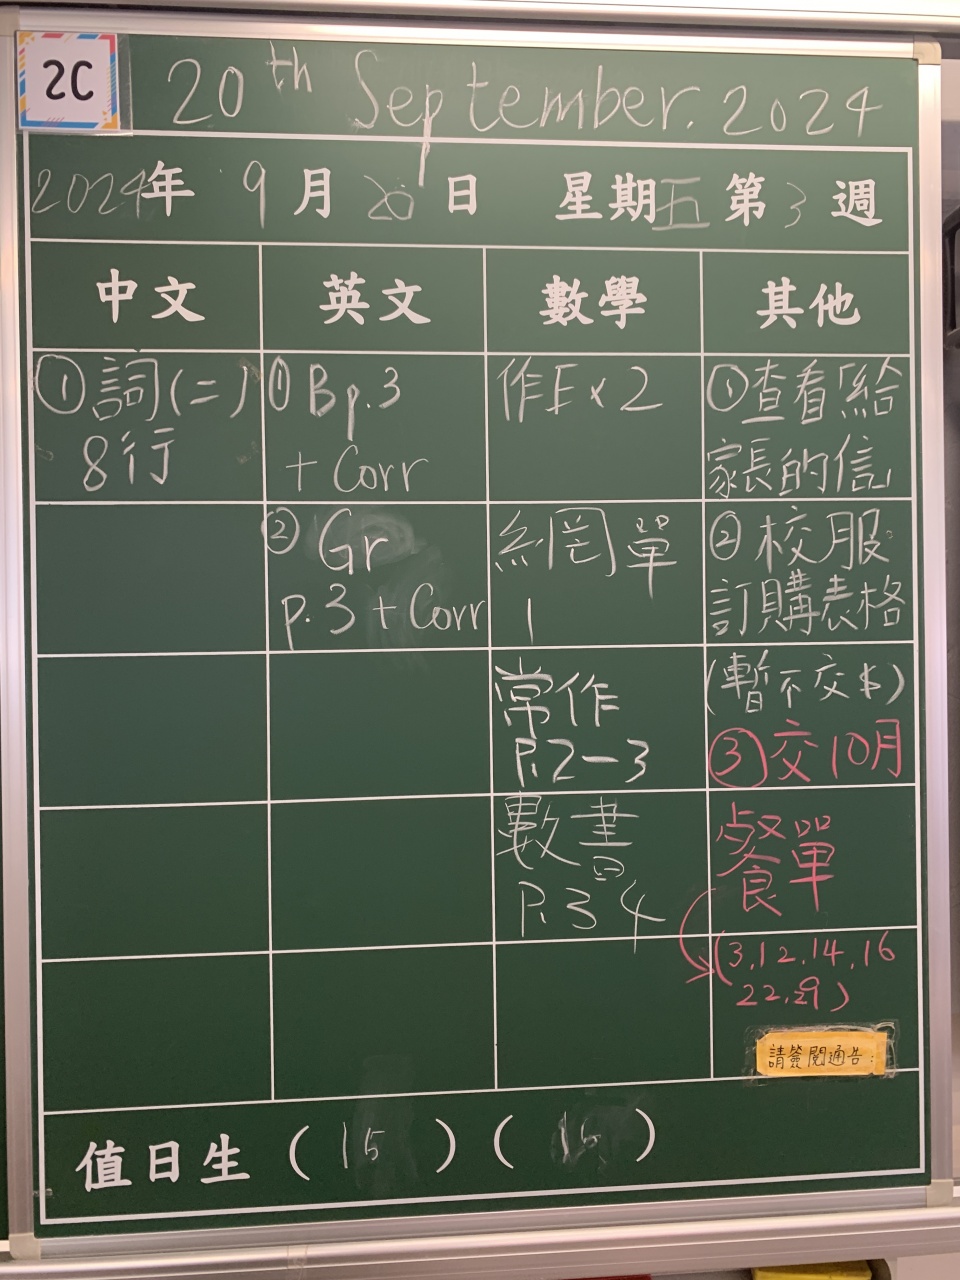 2C
20th September. 2024
2024年 9月 20日 星期五 第3週
中文
英文
數學
其他
①詞(二)
8行
① B p.3
+ Corr
② Gr
p.3 + Corr
作E×2
網單
1
常作
P.2-3
數書
P.34
①查看「給
家長的信」
②校服
訂購表格
(暫不交$)
③交10月
餐單
(3,12,14,16
22,29)
請簽閱通告:
值日生 (15) (16)